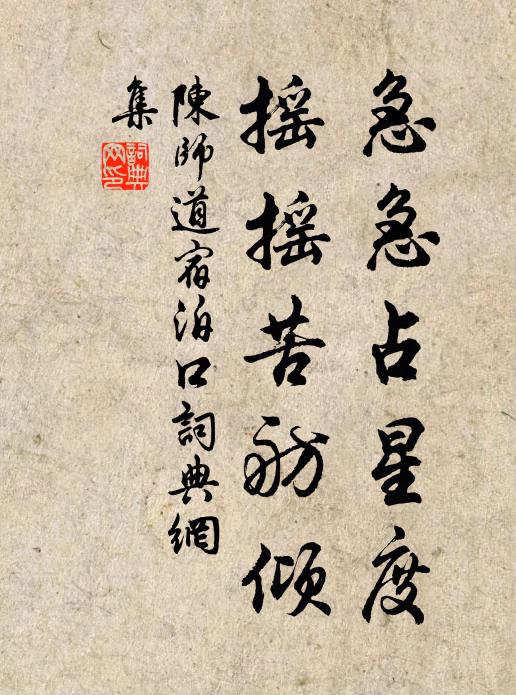 急急占星度
摇摇苦舫倾
陳師道宿泊口詞典網
集
詞典
网印